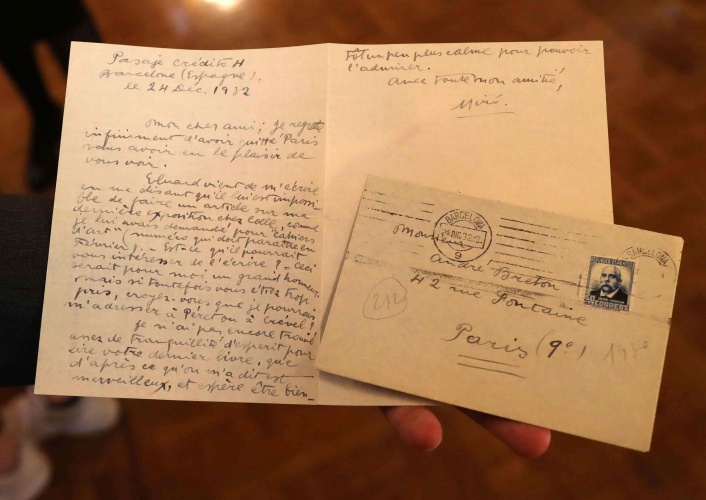 Pasaje Crédito 4
Barcelone (Espagne),
le 24 Déc. 1932
Mon cher ami; je regrette
infiniment d'avoir quitté Paris
sans avoir eu le plaisir de
vous voir.
Eluard vient de m'écrire
en me disant qu'il lui est impossi-
ble de faire un article sur ma
dernière exposition chez Colle, comme
je lui avais demandé pour "Cahiers
d'art" (numéro qui doit paraître en
Février). - Est-ce qu'il pourrait
vous intéresser de l'écrire? - Ceci
serait pour moi un grand honneur.
mais si toutefois vous étiez trop
pris, croyez-vous que je pourrais
m'adresser à Péret ou à Crevel?
Je n'ai pas encore trouvé
assez de tranquillité d'esprit pour
lire votre dernier livre, que
d'après ce qu'on m'a dit est
merveilleux, et espère être bien-
tôt un peu plus calme pour pouvoir
l'admirer.
avec toute mon amitié,
Miró.
BARCELONA
9
BARCELONA
Monsieur
André Breton
42 rue Fontaine
à
Paris (9e)
212
CORREOS